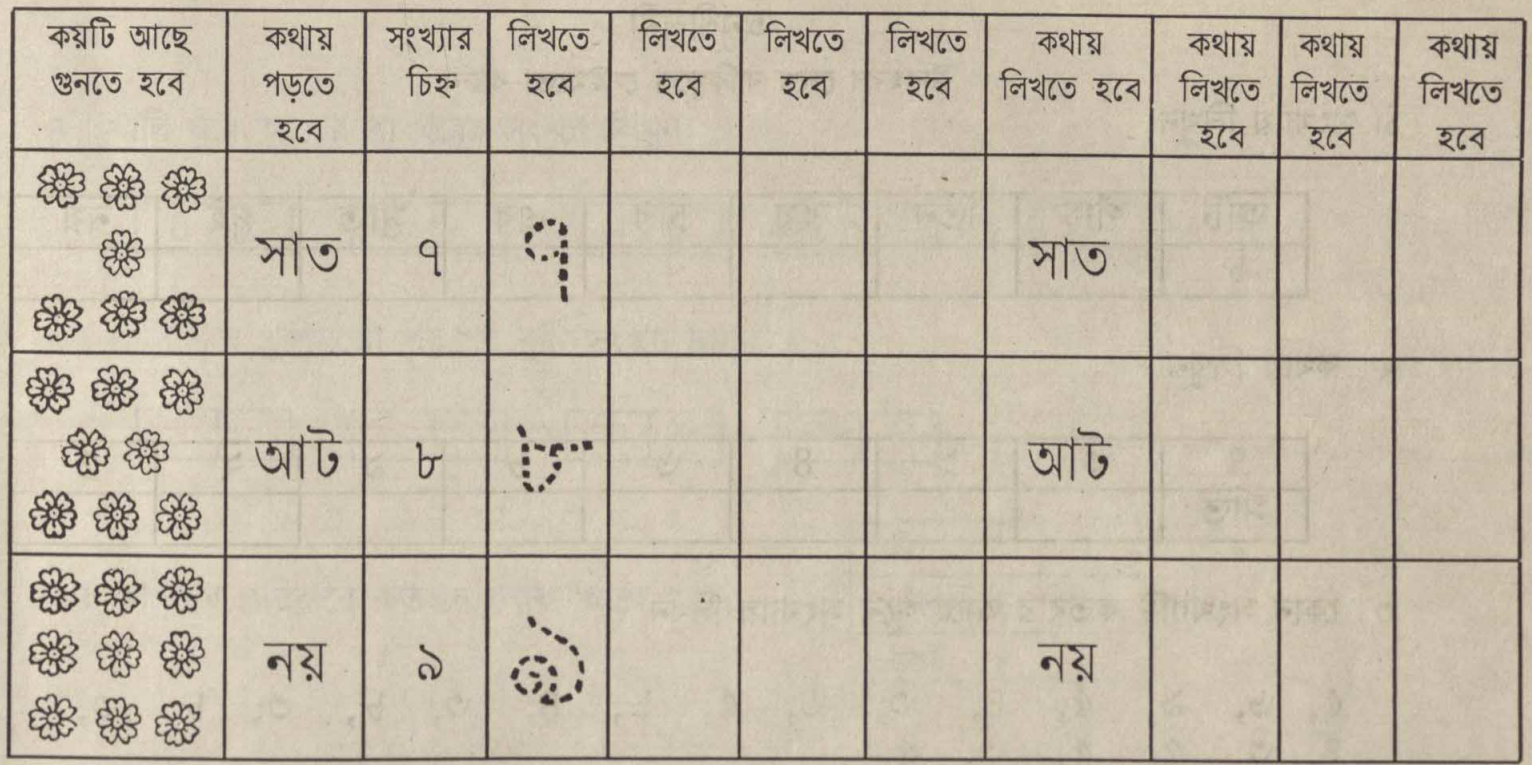 কয়টি আছে গুনতে হবে | কথায় পড়তে হবে | সংখ্যার চিহ্ন | লিখতে হবে | লিখতে হবে | লিখতে হবে | লিখতে হবে | কথায় লিখতে হবে | কথায় লিখতে হবে | কথায় লিখতে হবে | কথায় লিখতে হবে
সাত ৭ ৭ সাত
আট ৮ ৮ আট
নয় ৯ ৯ নয়